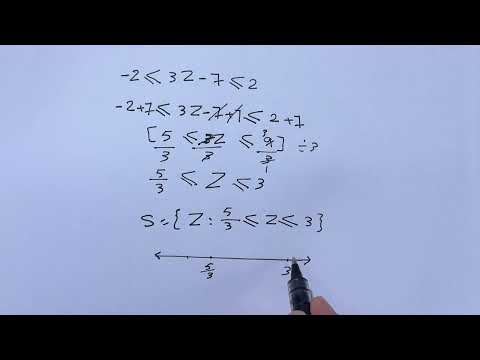 -2 ⩽ 3Z - 7 ⩽ 2
-2+7 ⩽ 3Z - 7 + 7 ⩽ 2 + 7
[5/3 ⩽ 3Z/3 ⩽ 9/3] ÷ 3
5/3 ⩽ Z ⩽ 3
S = { Z : 5/3 ⩽ Z ⩽ 3 }
5/3 3